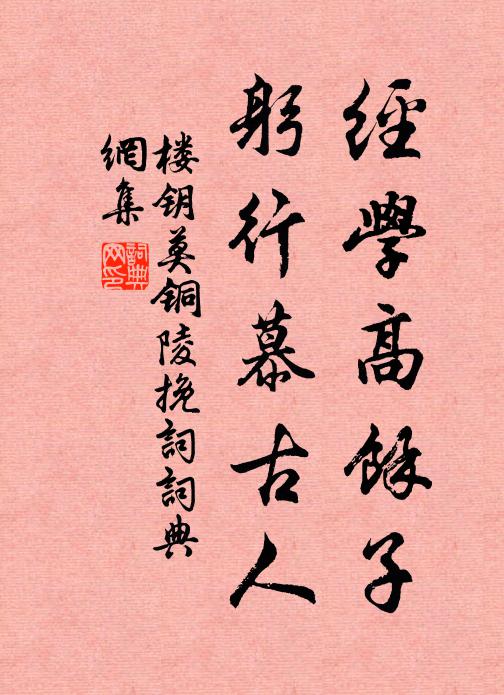 經學高餘子
躬行慕古人
楼钥莫铜陵挽詞詞典
網集
詞典
网印